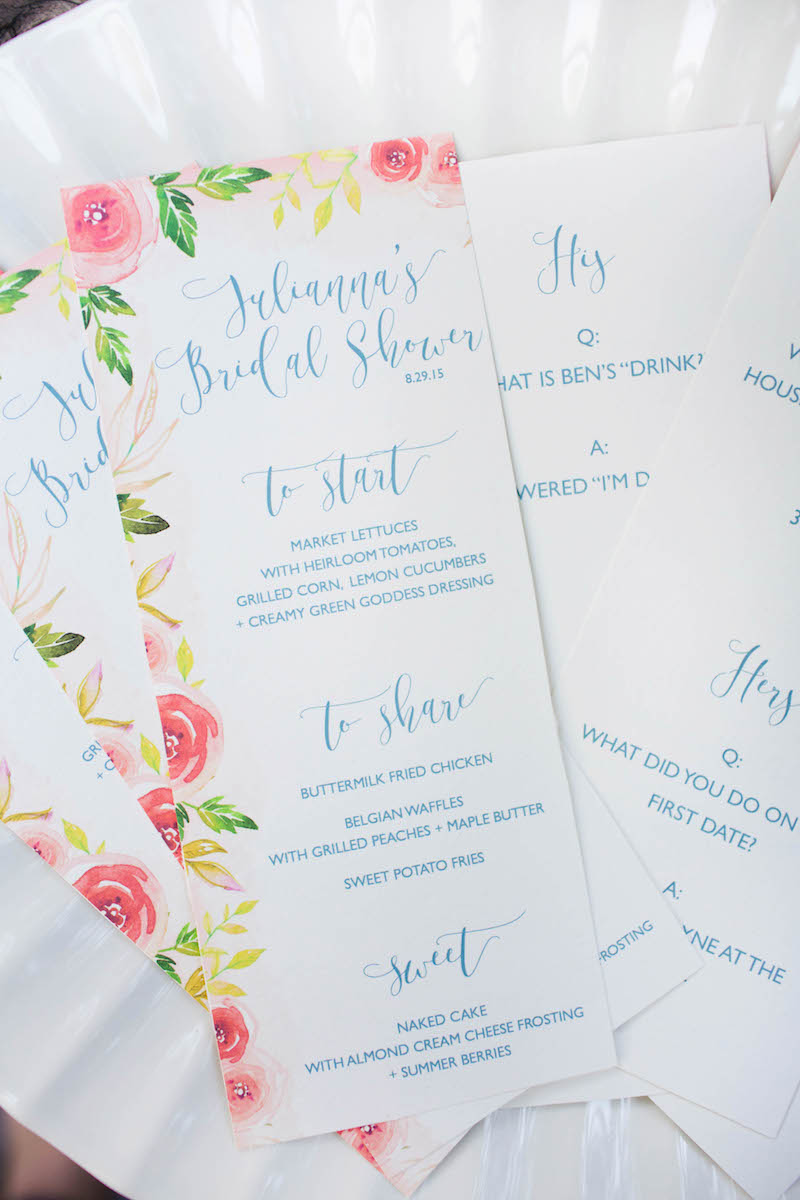 Julianna's
Bridal Shower
8.29.15
to start
MARKET LETTUCES
WITH HEIRLOOM TOMATOES,
GRILLED CORN, LEMON CUCUMBERS
+ CREAMY GREEN GODDESS DRESSING
to share
BUTTERMILK FRIED CHICKEN
BELGIAN WAFFLES
WITH GRILLED PEACHES + MAPLE BUTTER
SWEET POTATO FRIES
sweet
NAKED CAKE
WITH ALMOND CREAM CHEESE FROSTING
+ SUMMER BERRIES
His
Q:
HAT IS BEN'S "DRINK?
A:
WERED "I'M D
Hers
Q:
WHAT DID YOU DO ON
FIRST DATE?
A:
YNE AT THE
HOUS
3
FROSTING
Jul
Brid
GRI
+ C